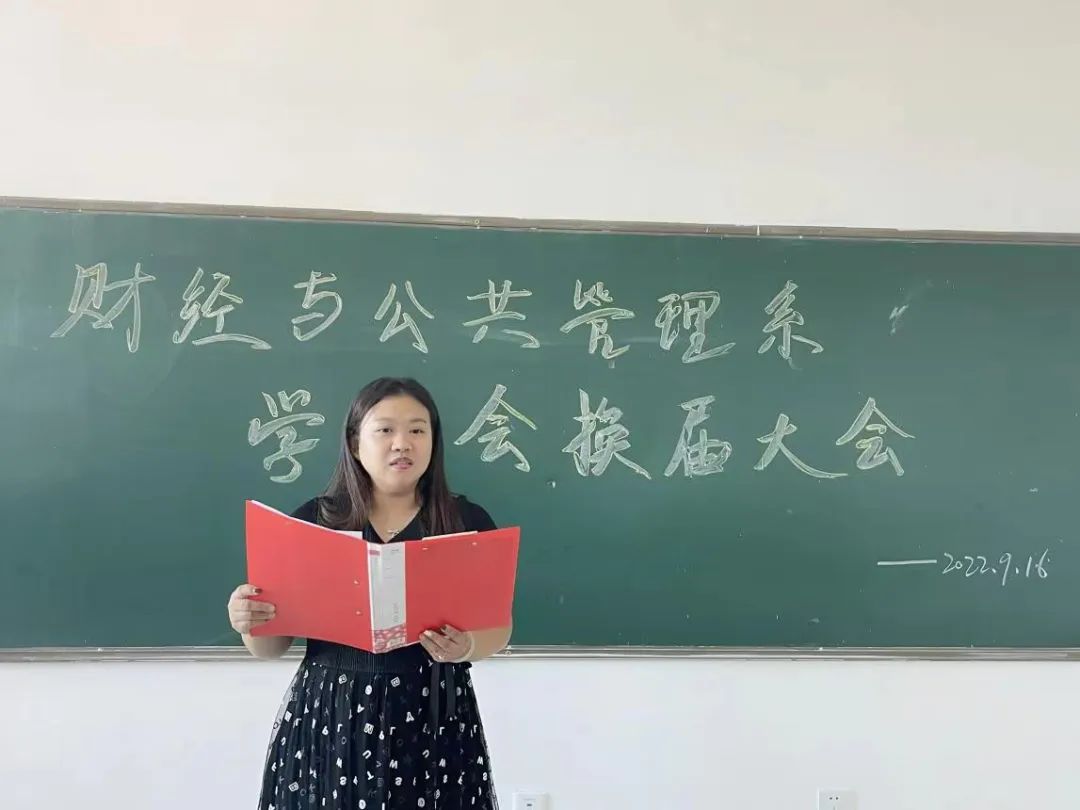 财经与公共管理系
学 会换届大会
——2022.9.16